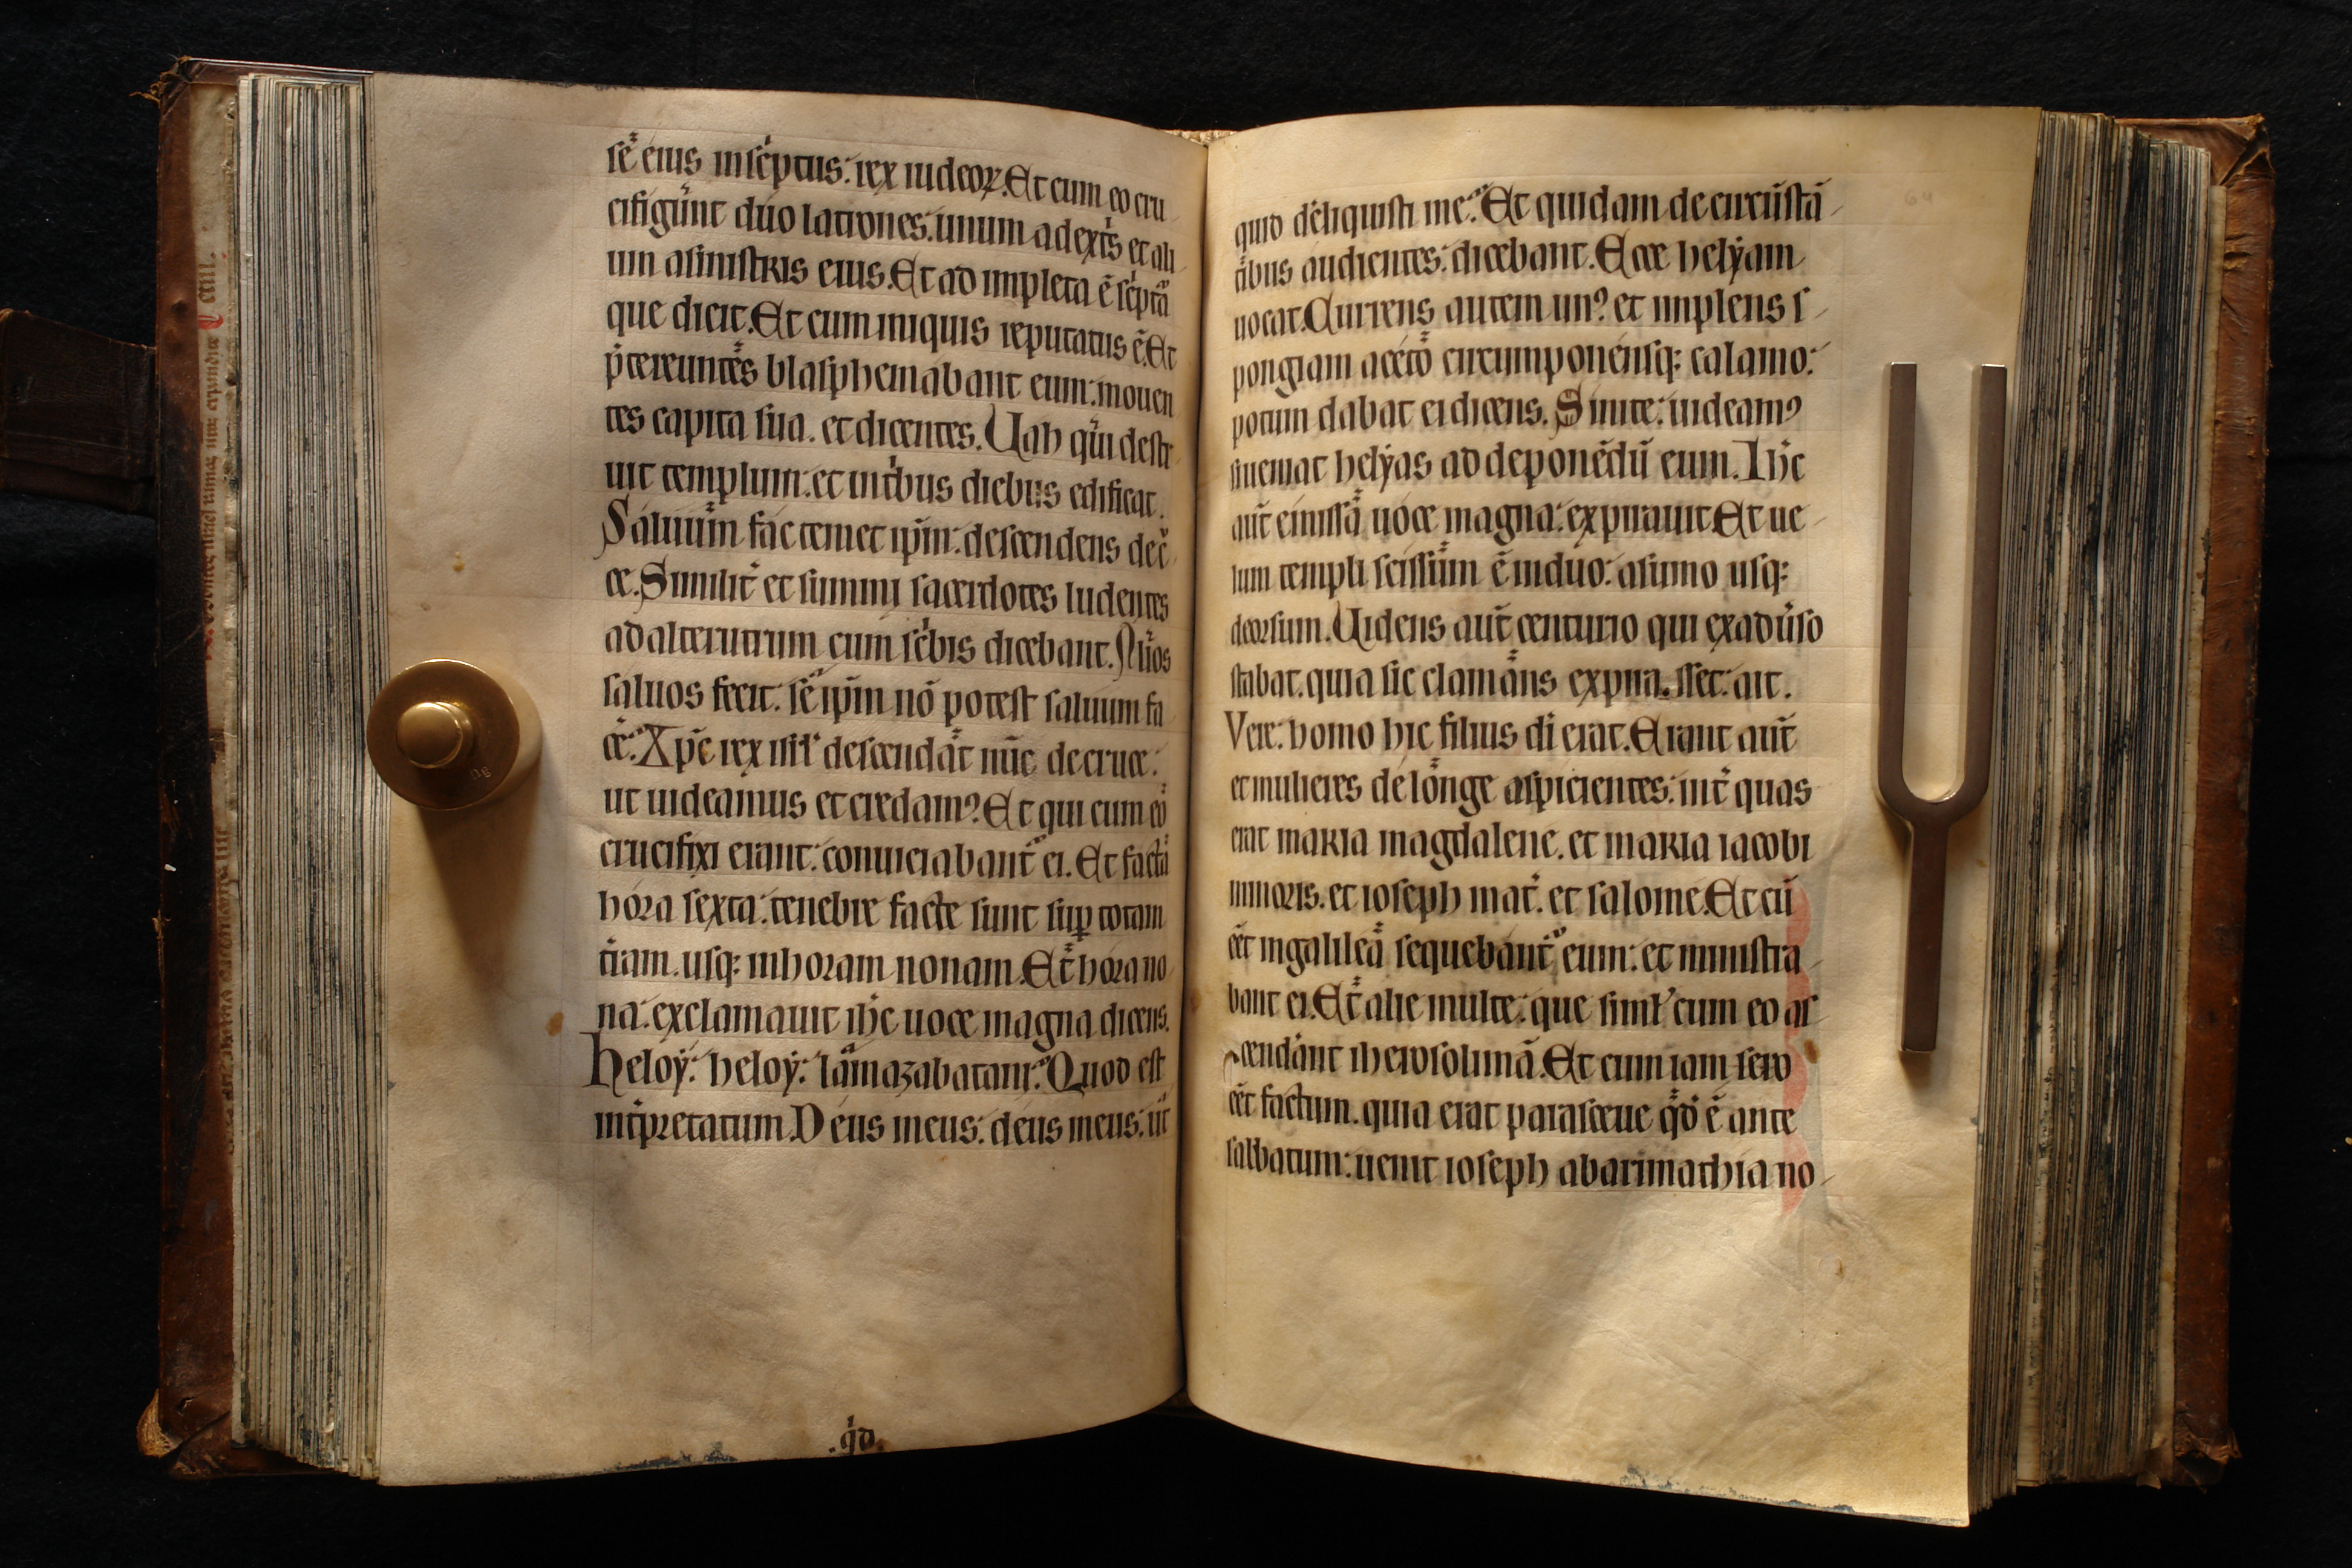 sē eius insc̾ptus: rex iudeoꝝ. Et cum eo cru
cifigūnt duo latrones: unum adext̾s et ali
um asinistris eius. Et ad impleta ē sc̾ptā
que dicit. Et cum iniquis reputatus ē. Et
p̄tereuntes blasphemabant eum: mouen
tes capita sua. et dicentes. Uah qui destr
uit templum: et intͥbus diebus edificat.
Saluum fac temet ip̄m: descendens dec̾
ce. Similit̾ et summi sacerdotes ludentes
ad alterutrum cum sc̾bis dicebant. Alios
saluos fecit: se ip̄m nō potest saluum fa
ce̾. Xp̄c rex isrl̾ descendat nūc de cruce:
ut uideamus et credamꝰ. Et qui cum eo
crucifixi erant: conuiciabant̾ ei. Et facta
hora sexta: tenebre facte sunt suꝑ totam
t̾ram. usqꝫ inhoram nonam. Et hora no
na: exclamauit ih̄c uoce magna dicens.
heloẏ: heloẏ: lamazabatani: Quod est
int̾pretatum. Deus meus: deus meus: ut
.qͥd.
quid dereliquisti me: Et quidam de circūstā
tͥbus audientes: dicebant. Ecce helẏam
uocat. Currens autem unꝰ et implens s
pongiam aceto circumponensqꝫ calamo:
potum dabat ei dicens. Sinite: uideamꝰ
siueniat helẏas ad deponēdū eum. Ih̄c
aūt emissa uoce magna: expirauit. Et ue
lum templi scissum ē induo: asumo usqꝫ
deorsum. Uidens aūt centurio qui exadu̾so
stabat. quia sic clamans expirasset: ait.
Vere: homo hic filius di erat. Erant aūt
et mulieres de longe aspicientes: int̾ quas
erat maria magdalene. et maria iacobi
minoris. et ioseph mat̾. et salome. Et cū
eēt ingalilea sequebant̾ eum: et ministra
bant ei. Et alie multe: que siml̾ cum eo as
cendant iherosolimā. Et cum iam sero
eēt factum. quia erat parasceue qd̾ ē ante
sabbatum: uenit ioseph abarimathia no